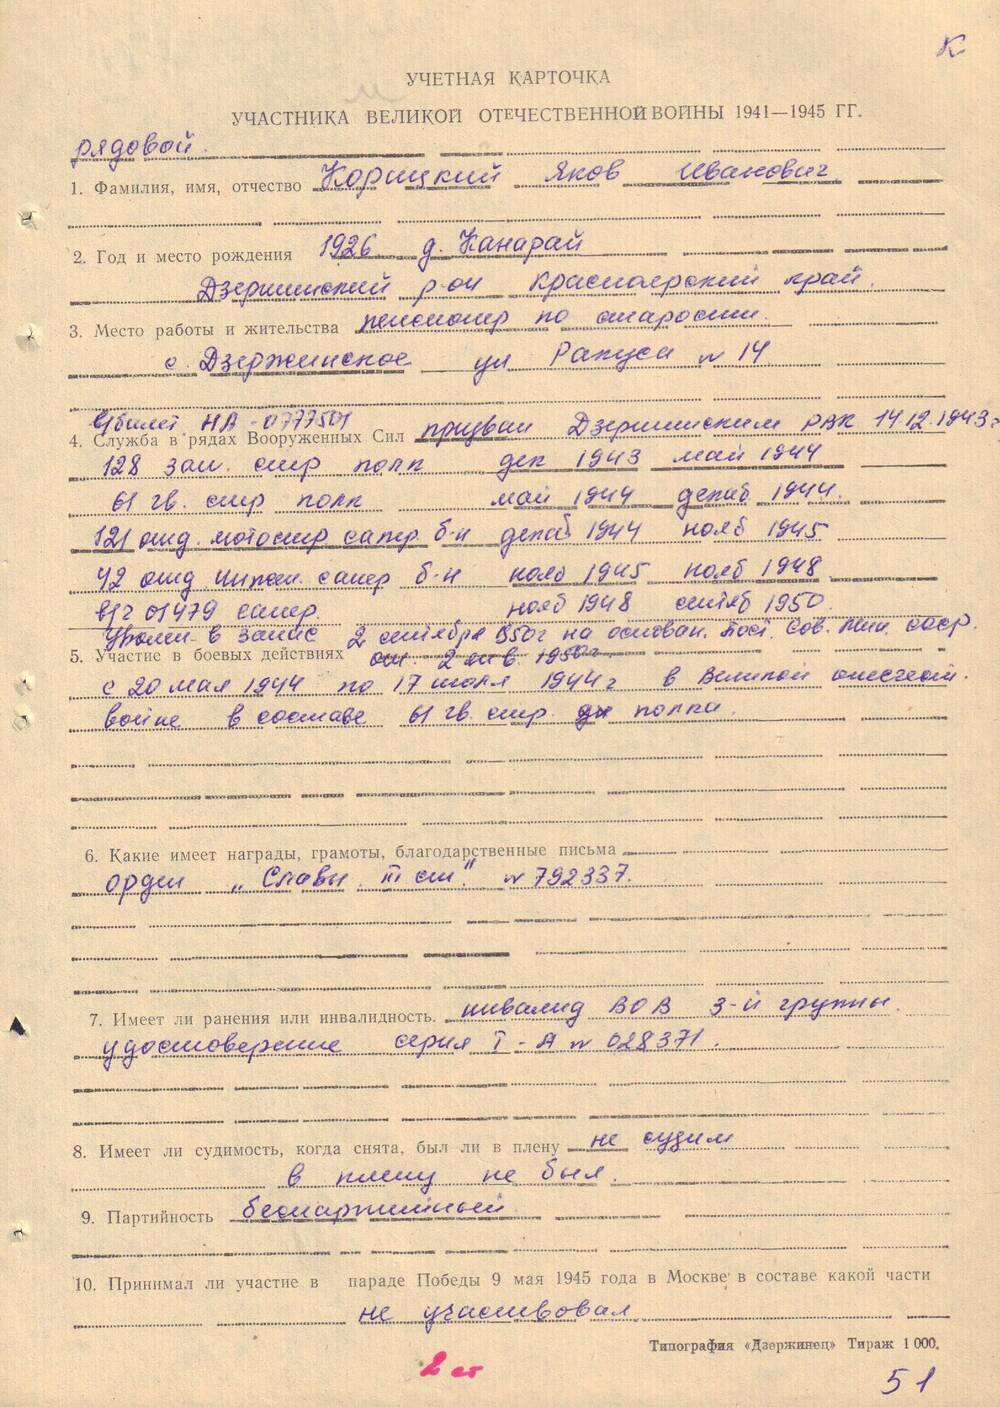 К
УЧЕТНАЯ КАРТОЧКА
УЧАСТНИКА ВЕЛИКОЙ ОТЕЧЕСТВЕННОЙ ВОЙНЫ 1941—1945 ГГ.
рядовой.
1. Фамилия, имя, отчество Корицкий Яков Иванович
2. Год и место рождения 1926 д. Канарай
Дзержинский р-он Красноярский край.
3. Место работы и жительства пенсионер по старости.
с. Дзержинское ул Рапуса № 14
в/билет НА-0777501
4. Служба в рядах Вооруженных Сил призван Дзержинским РВК 14.12.1943г
128 зап. стр полк дек 1943 май 1944
61 гв. стр полк май 1944 декаб 1944.
121 отд. мотостр сапер. б-н декаб 1944 нояб 1945
42 отд инжен. сапер б-н нояб 1945 нояб 1948.
в/ч 01479 сапер. нояб 1948 сентяб 1950.
Уволен в запас 2 сентября 1950г на основан. Пост. Сов. Мин. ссср.
5. Участие в боевых действиях от. 2 янв. 1950г
с 20 мая 1944 по 17 июля 1944г в Великой отечест.
войне в составе 61 гв. стр. полка.
6. Какие имеет награды, грамоты, благодарственные письма
орден „Славы III ст." № 792337.
7. Имеет ли ранения или инвалидность. инвалид ВОВ 3-й группы.
удостоверение серия I-А № 028371.
8. Имеет ли судимость, когда снята, был ли в плену не судим
в плену не был.
9. Партийность беспартийный
10. Принимал ли участие в параде Победы 9 мая 1945 года в Москве в составе какой части
не участвовал
Типография «Дзержинец» Тираж 1 000.
2 ст
51